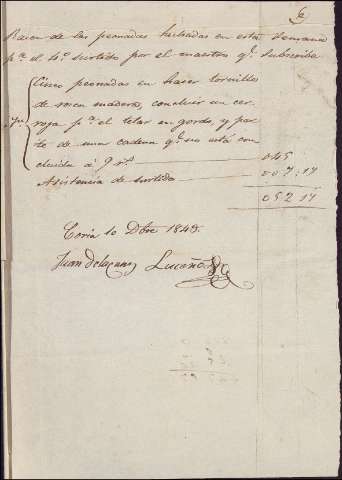 Razon de las peonadas hechadas en esta semana
pª el 4º surtido por el maestro qe subscribe
Cinco peonadas en hacer tornillos
de rosca madera, concluir un cer-
roja pª el telar en gordo, y par-
te de una cadena qe no está con
cluida á 9 rs 045
Asistencia de surtido 007:17
052 17
Coria 10 Dbre 1843.
Juan de la Luceño